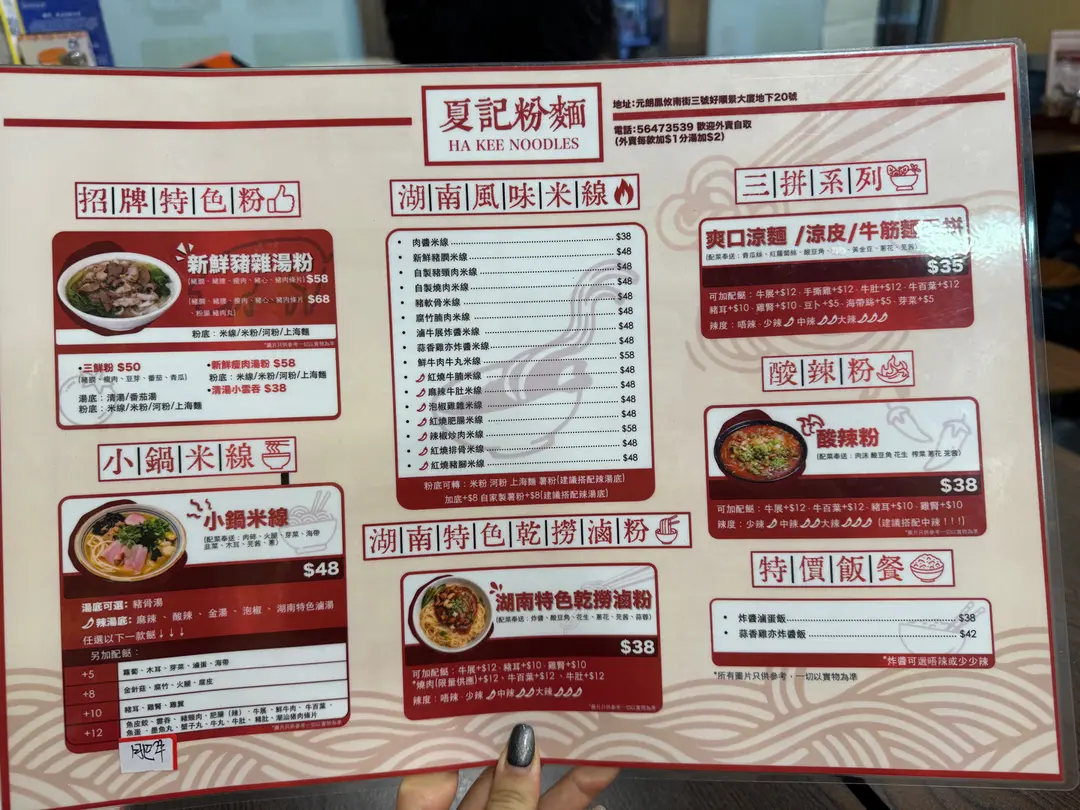 夏記粉麵
HA KEE NOODLES
地址：元朗鳳攸南街三號好順景大廈地下20號
電話：56473539 歡迎外賣自取
(外賣每款加$1分湯加$2)
招牌特色粉
新鮮豬雜湯粉
(豬膶、豬腰、瘦肉、豬心、豬肉條片) $58
(豬膶、豬腰、瘦肉、豬心、豬肉條片、粉腸 豬肉丸) $68
粉底：米線/米粉/河粉/上海麵
*圖片只供參考一切以實物為準
•三鮮粉 $50
(豬膶、瘦肉、豆芽、番茄、青瓜)
湯底：清湯/番茄湯
粉底：米線/米粉/河粉/上海麵
•新鮮瘦肉湯粉 $58
粉底：米線/米粉/河粉/上海麵
•清湯小雲吞 $38
小鍋米線
小鍋米線
(配菜奉送：肉碎、火腿、芽菜、海帶
韭菜、木耳、芫茜、蔥)
$48
湯底可選：豬骨湯
辣湯底：麻辣、酸辣、金湯、泡椒、湖南特色滷湯
任選以下一款餸↓↓↓
另加配餸：
+5 蘿蔔、木耳、芽菜、滷蛋、海帶
+8 金針菇、腐竹、火腿、腐皮
+10 豬耳、雞腎、雞翼
+12 魚皮餃、雲吞、豬頸肉、肥腸（辣）、牛展、鮮牛肉、牛百葉、
魚蛋、墨魚丸、蟹子丸、牛丸、牛肚、豬肚、潮汕豬肉條片
*圖片只供參考一切以實物為準
肥牛
湖南風味米線
• 肉醬米線 $38
• 新鮮豬膶米線 $48
• 自製豬頸肉米線 $48
• 自製燒肉米線 $48
• 豬軟骨米線 $48
• 腐竹腩肉米線 $48
• 滷牛展炸醬米線 $48
• 蒜香雞亦炸醬米線 $48
• 鮮牛肉牛丸米線 $58
• 紅燒牛腩米線 $48
• 麻辣牛肚米線 $48
• 泡椒雞雜米線 $48
• 紅燒肥腸米線 $48
• 辣椒炒肉米線 $58
• 紅燒排骨米線 $48
• 紅燒豬腳米線 $48
粉底可轉：米粉 河粉 上海麵 薯粉(建議搭配辣湯底)
加底+$8 自家製薯粉+$8(建議搭配辣湯底)
湖南特色乾撈滷粉
湖南特色乾撈滷粉
(配菜奉送：炸醬、酸豆角、花生、蔥花、芫茜、蒜蓉)
$38
可加配餸：牛展+$12、豬耳+$10、雞腎+$10
*燒肉(限量供應)+$12、牛百葉+$12、牛肚+$12
辣度：唔辣、少辣 中辣 大辣
*圖片只供參考一切以實物為準
三拼系列
爽口涼麵/涼皮/牛筋麵
(配菜奉送：青瓜絲、紅蘿蔔絲、酸豆角、黃金豆、蔥花、芫茜)
$35
可加配餸：牛展+$12、手撕雞+$12、牛肚+$12、牛百葉+$12
豬耳+$10、雞腎+$10、豆卜+$5、海帶絲+$5、芽菜+$5
辣度：唔辣、少辣 中辣 大辣
酸辣粉
酸辣粉
(配菜奉送：肉沫 酸豆角 花生 榨菜 蔥花 芫茜)
$38
可加配餸：牛展+$12、牛百葉+$12、豬耳+$10、雞腎+$10
辣度：少辣 中辣 大辣 (建議搭配中辣!!!)
*圖片只供參考一切以實物為準
特價飯餐
• 炸醬滷蛋飯 $38
• 蒜香雞亦炸醬飯 $42
*炸醬可選唔辣或少少辣
*所有圖片只供參考，一切以實物為準